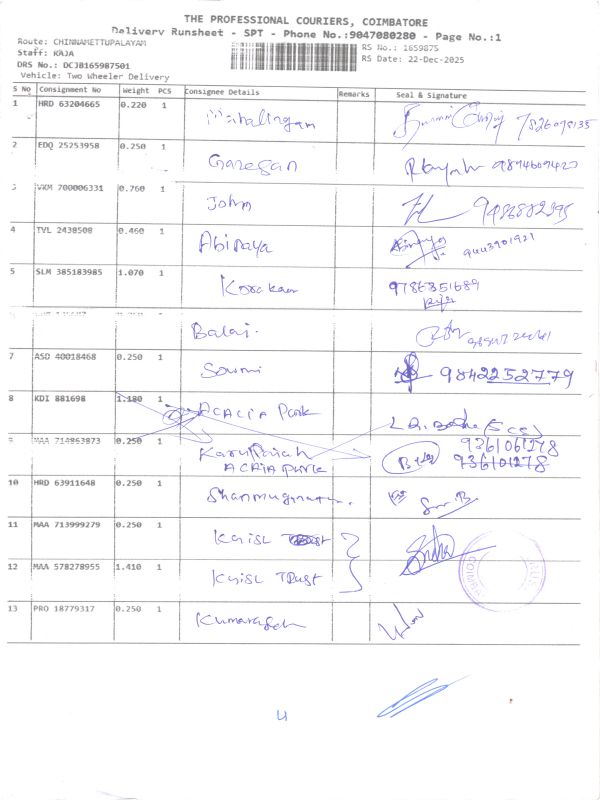 THE PROFESSIONAL COURIERS, COIMBATORE
Delivery Runsheet - SPT - Phone No.:9047080280 - Page No.:1
Route: CHINNAMETTUPALAYAM
Staff: KAJA
DRS No.: DCJB165987501
Vehicle: Two Wheeler Delivery
RS No.: 1659875
RS Date: 22-Dec-2025
S No Consignment No Weight PCS Consignee Details Remarks Seal & Signature
1 HRD 63204665 0.220 1 Mahalingam
2 EDQ 25253958 0.250 1 Ganesan 9894609420
VKM 700006331 0.760 1 John 9486882395
4 TVL 2438508 0.460 1 Abinaya 9443901921
5 SLM 385183985 1.070 1 9786351689
Balai.
7 ASD 40018468 0.250 1 Soumi 9842252779
8 KDI 881698 1.180 1 ACACIA Park
9361061278
9 MAA 714863873 0.250 1 Karuppaiah 9361061278
ACACIA PARK
10 HRD 63911648 0.250 1
11 MAA 713999279 0.250 1 Trust
12 MAA 578278955 1.410 1 Trust
13 PRO 18779317 0.250 1